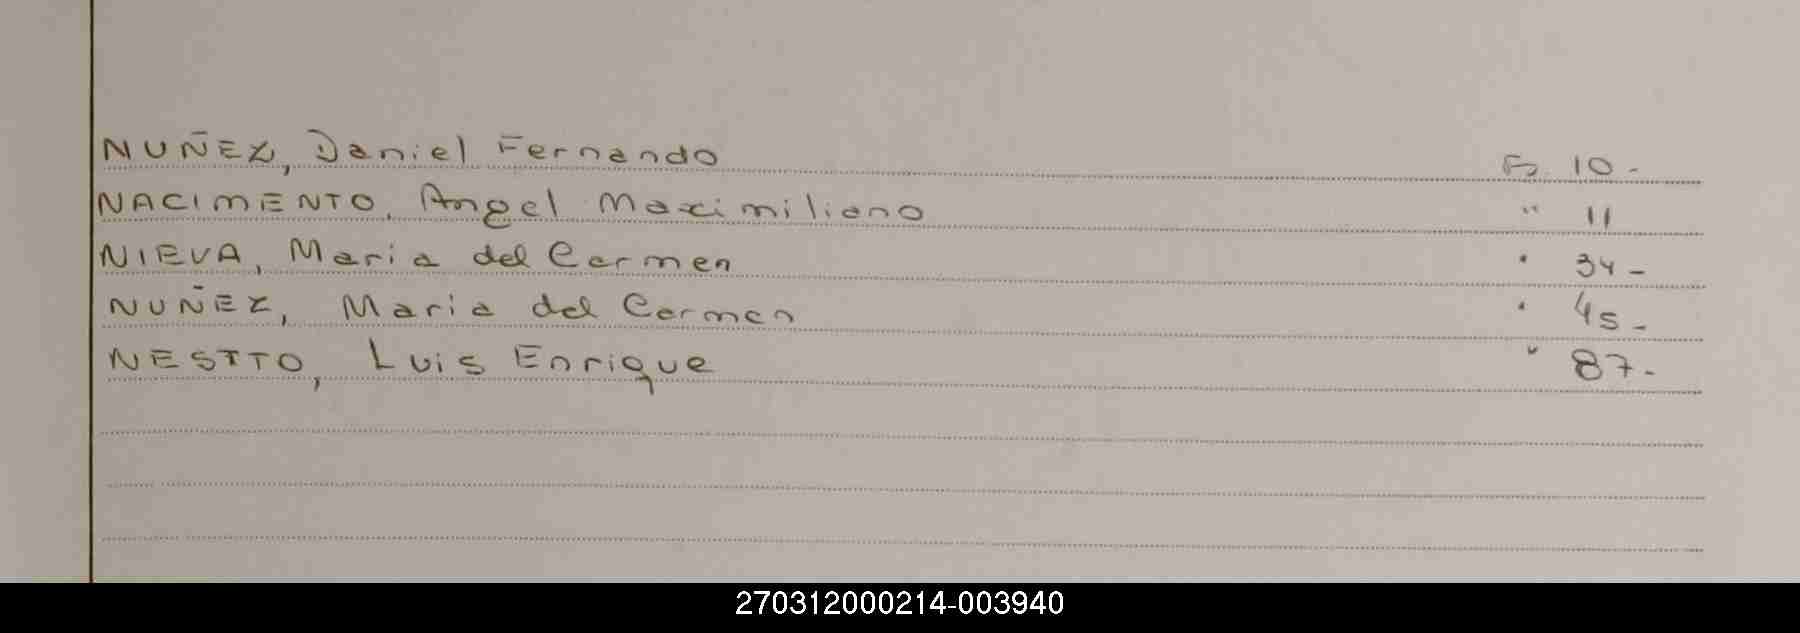 NUÑEZ, Daniel Fernando Fs. 10-
NACIMENTO, Angel Maximiliano " 11
NIEVA, Maria del Carmen " 34-
NUÑEZ, Maria del Carmen " 45-
NESTTO, Luis Enrique " 87-
270312000214-003940